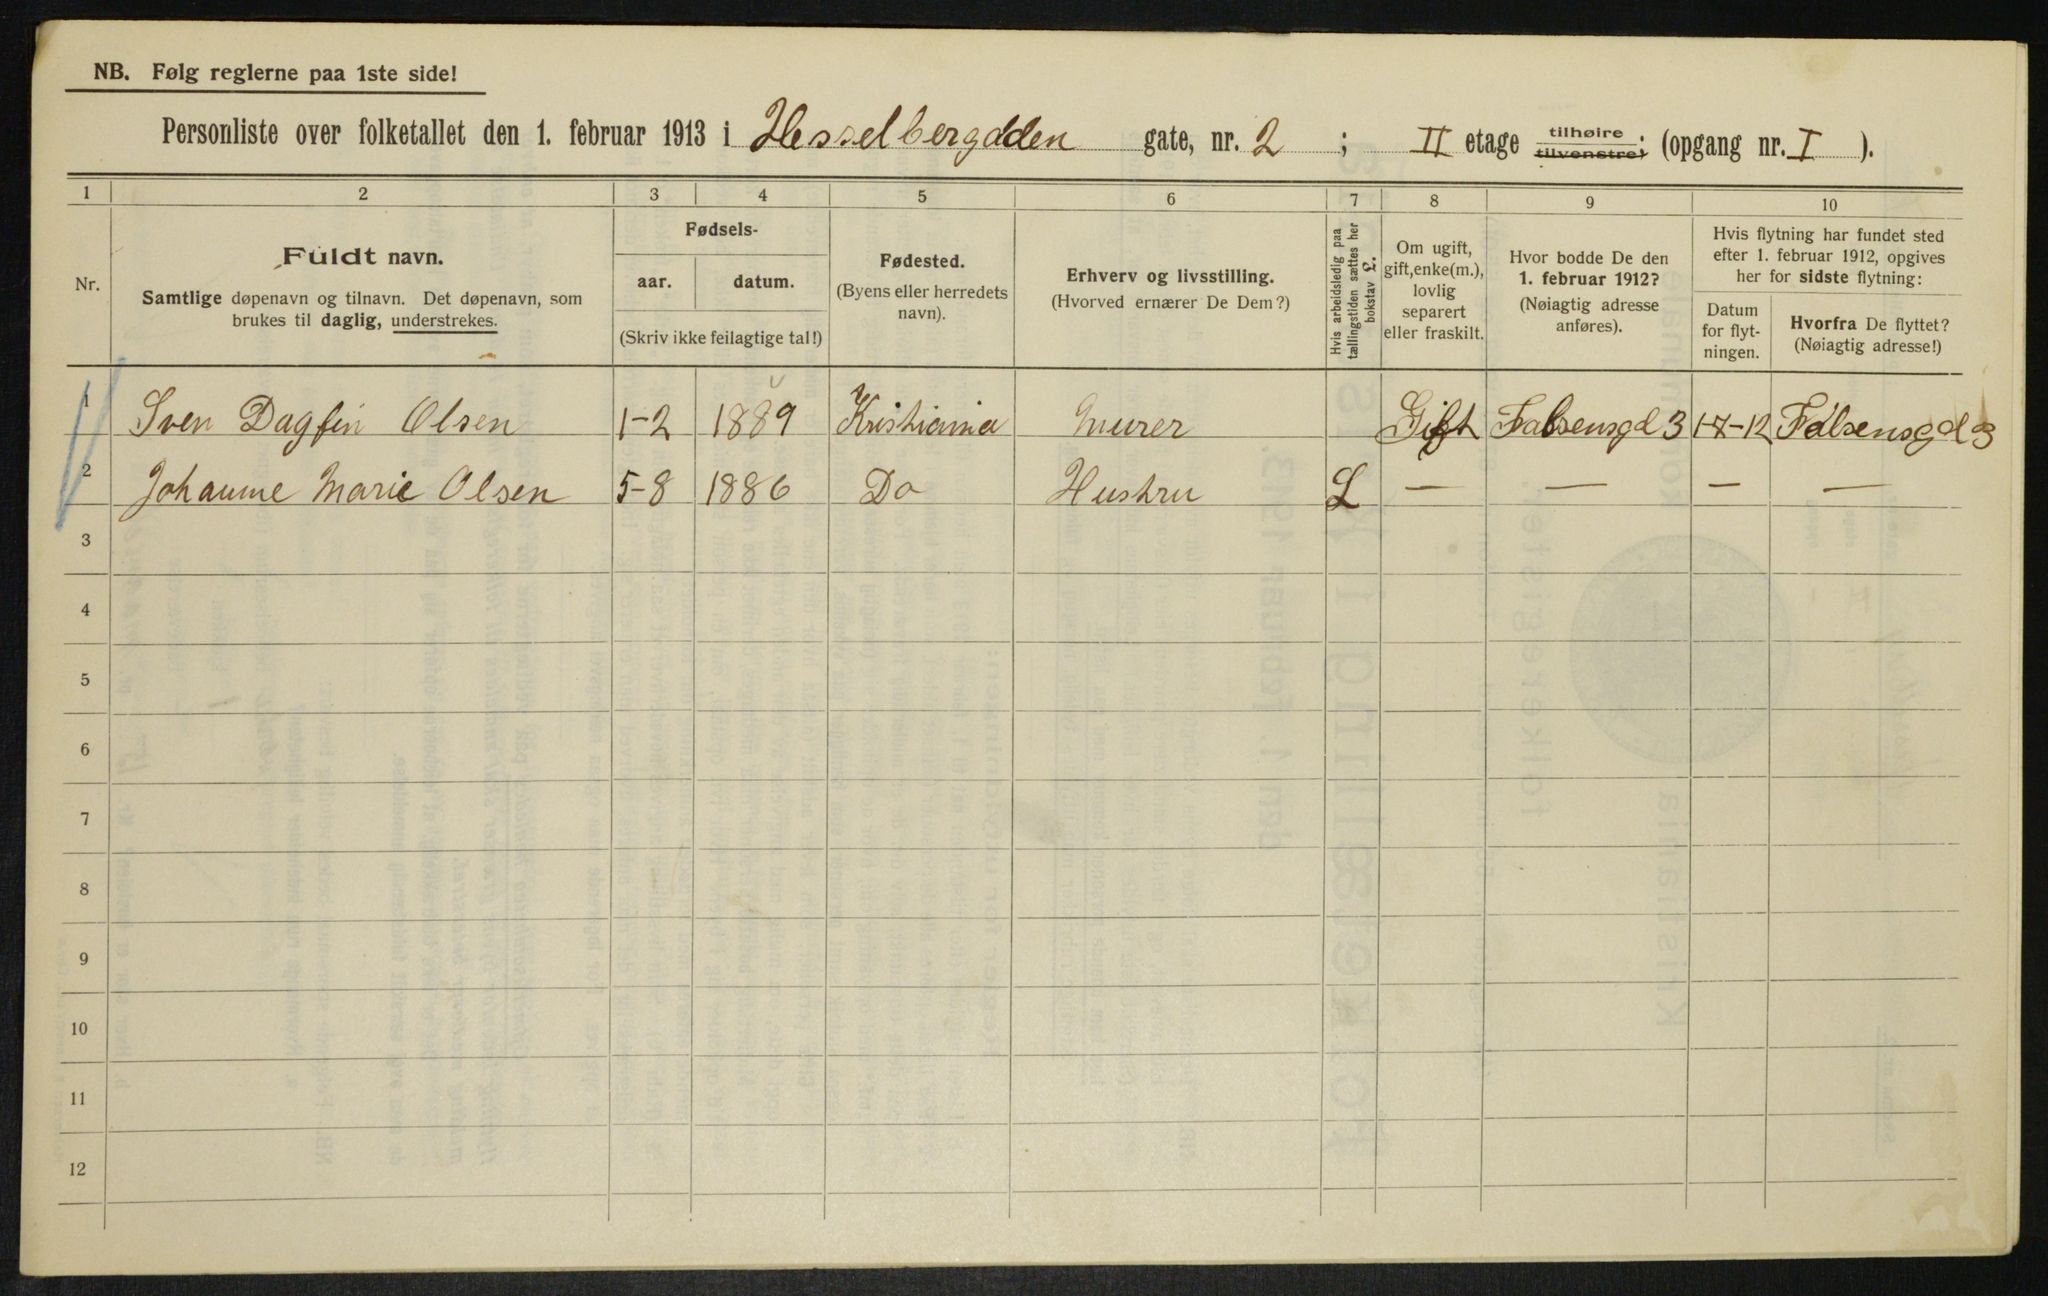 NB. Følg reglerne paa 1ste side!
Personliste over folketallet den 1. februar 1913 i Hesselbergdden gate, nr. 2 ; II etage tilhøire tilvenstre; (opgang nr. I ).
1 2 3 4 5 6 7 8 9 10
Nr.
Fuldt navn.
Samtlige døpenavn og tilnavn. Det døpenavn, som
brukes til daglig, understrekes.
Fødsels-
aar. datum.
(Skriv ikke feilagtige tal!)
Fødested.
(Byens eller herredets
navn).
Erhverv og livsstilling.
(Hvorved ernærer De Dem?)
Hvis arbeidsledig paa
tællingstiden sættes her
bokstav £.
Om ugift,
gift, enke(m.),
lovlig
separert
eller fraskilt.
Hvor bodde De den
1. februar 1912?
(Nøiagtig adresse
anføres).
Hvis flytning har fundet sted
efter 1. februar 1912, opgives
her for sidste flytning:
Datum
for flyt-
ningen.
Hvorfra De flyttet?
(Nøiagtig adresse!)
1 Sven Dagfin Olsen 1-2 1889 Kristiania Murer Gift Falsensgd 3 1-7-12 Falsensgd 3
2 Johanne Marie Olsen 5-8 1886 Do Hustru L — — — —
3
4
5
6
7
8
9
10
11
12